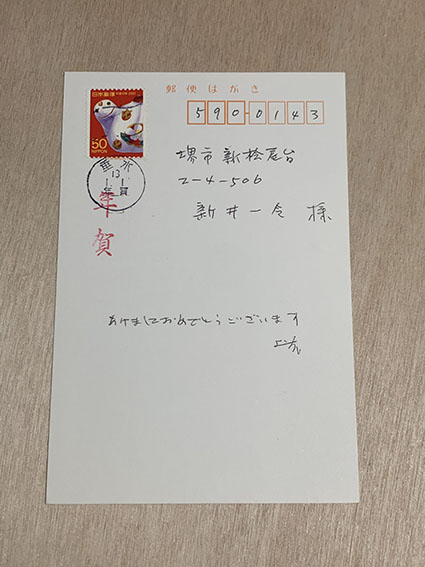 郵便はがき
590-0143
日本郵便
50
NIPPON
垂水
13
年賀
堺市新桧尾台
2-4-506
新井一令 様
あけましておめでとうございます